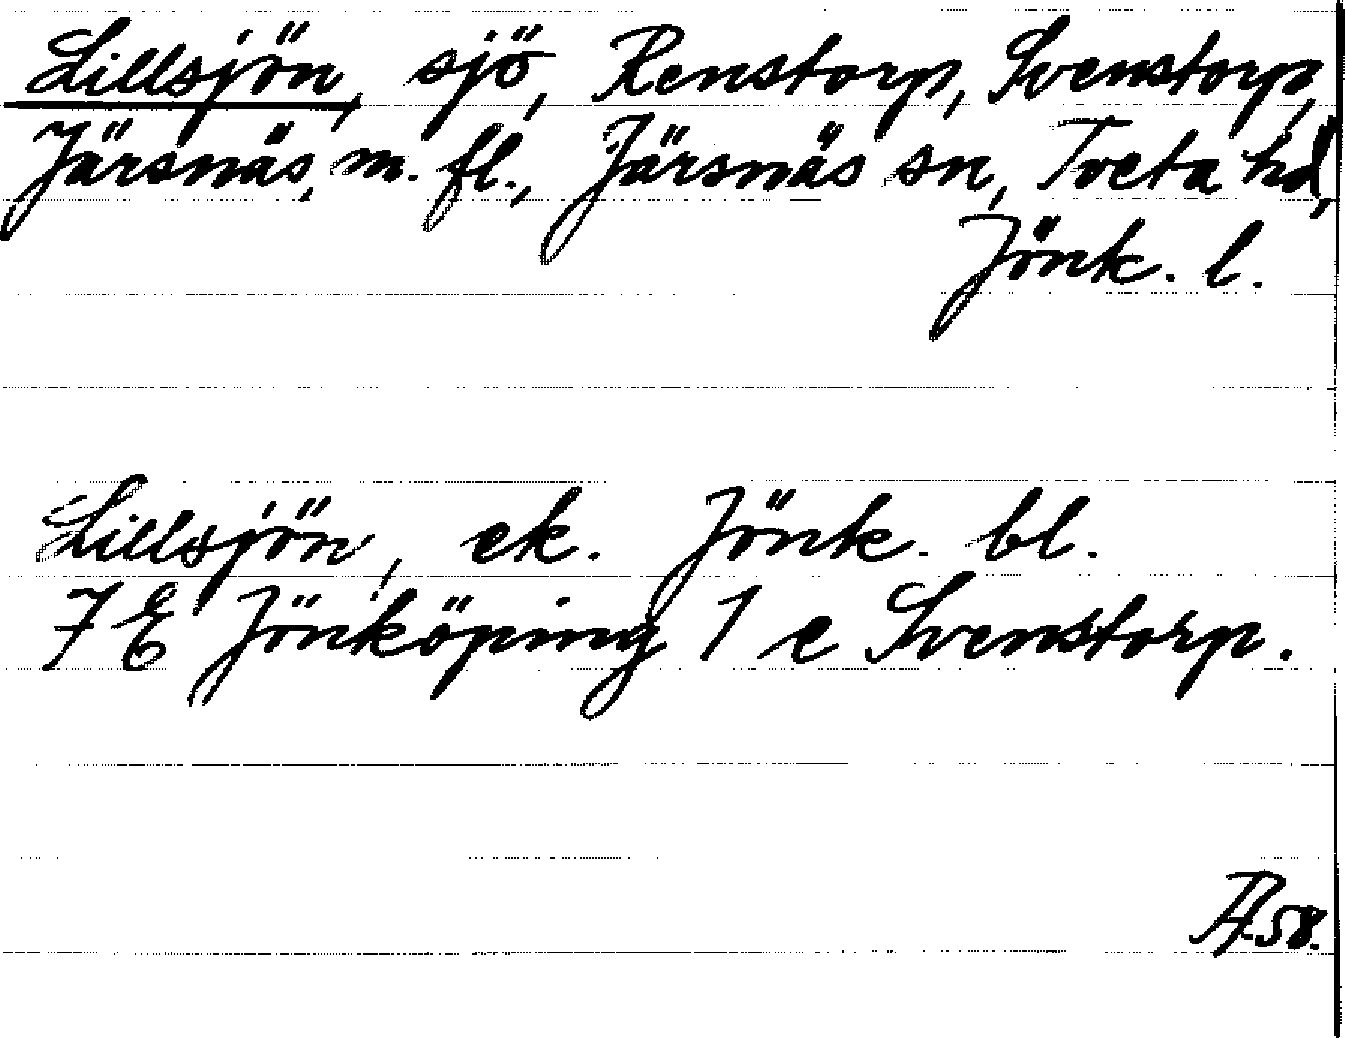 Lillsjön, sjö, Renstorp, Svenstorp,
Järsnäs, m. fl., Järsnäs sn, Tveta hd,
Jönk. l.
Lillsjön, ek. Jönk. bl.
7 E Jönköping 1 e Svenstorp.
58.